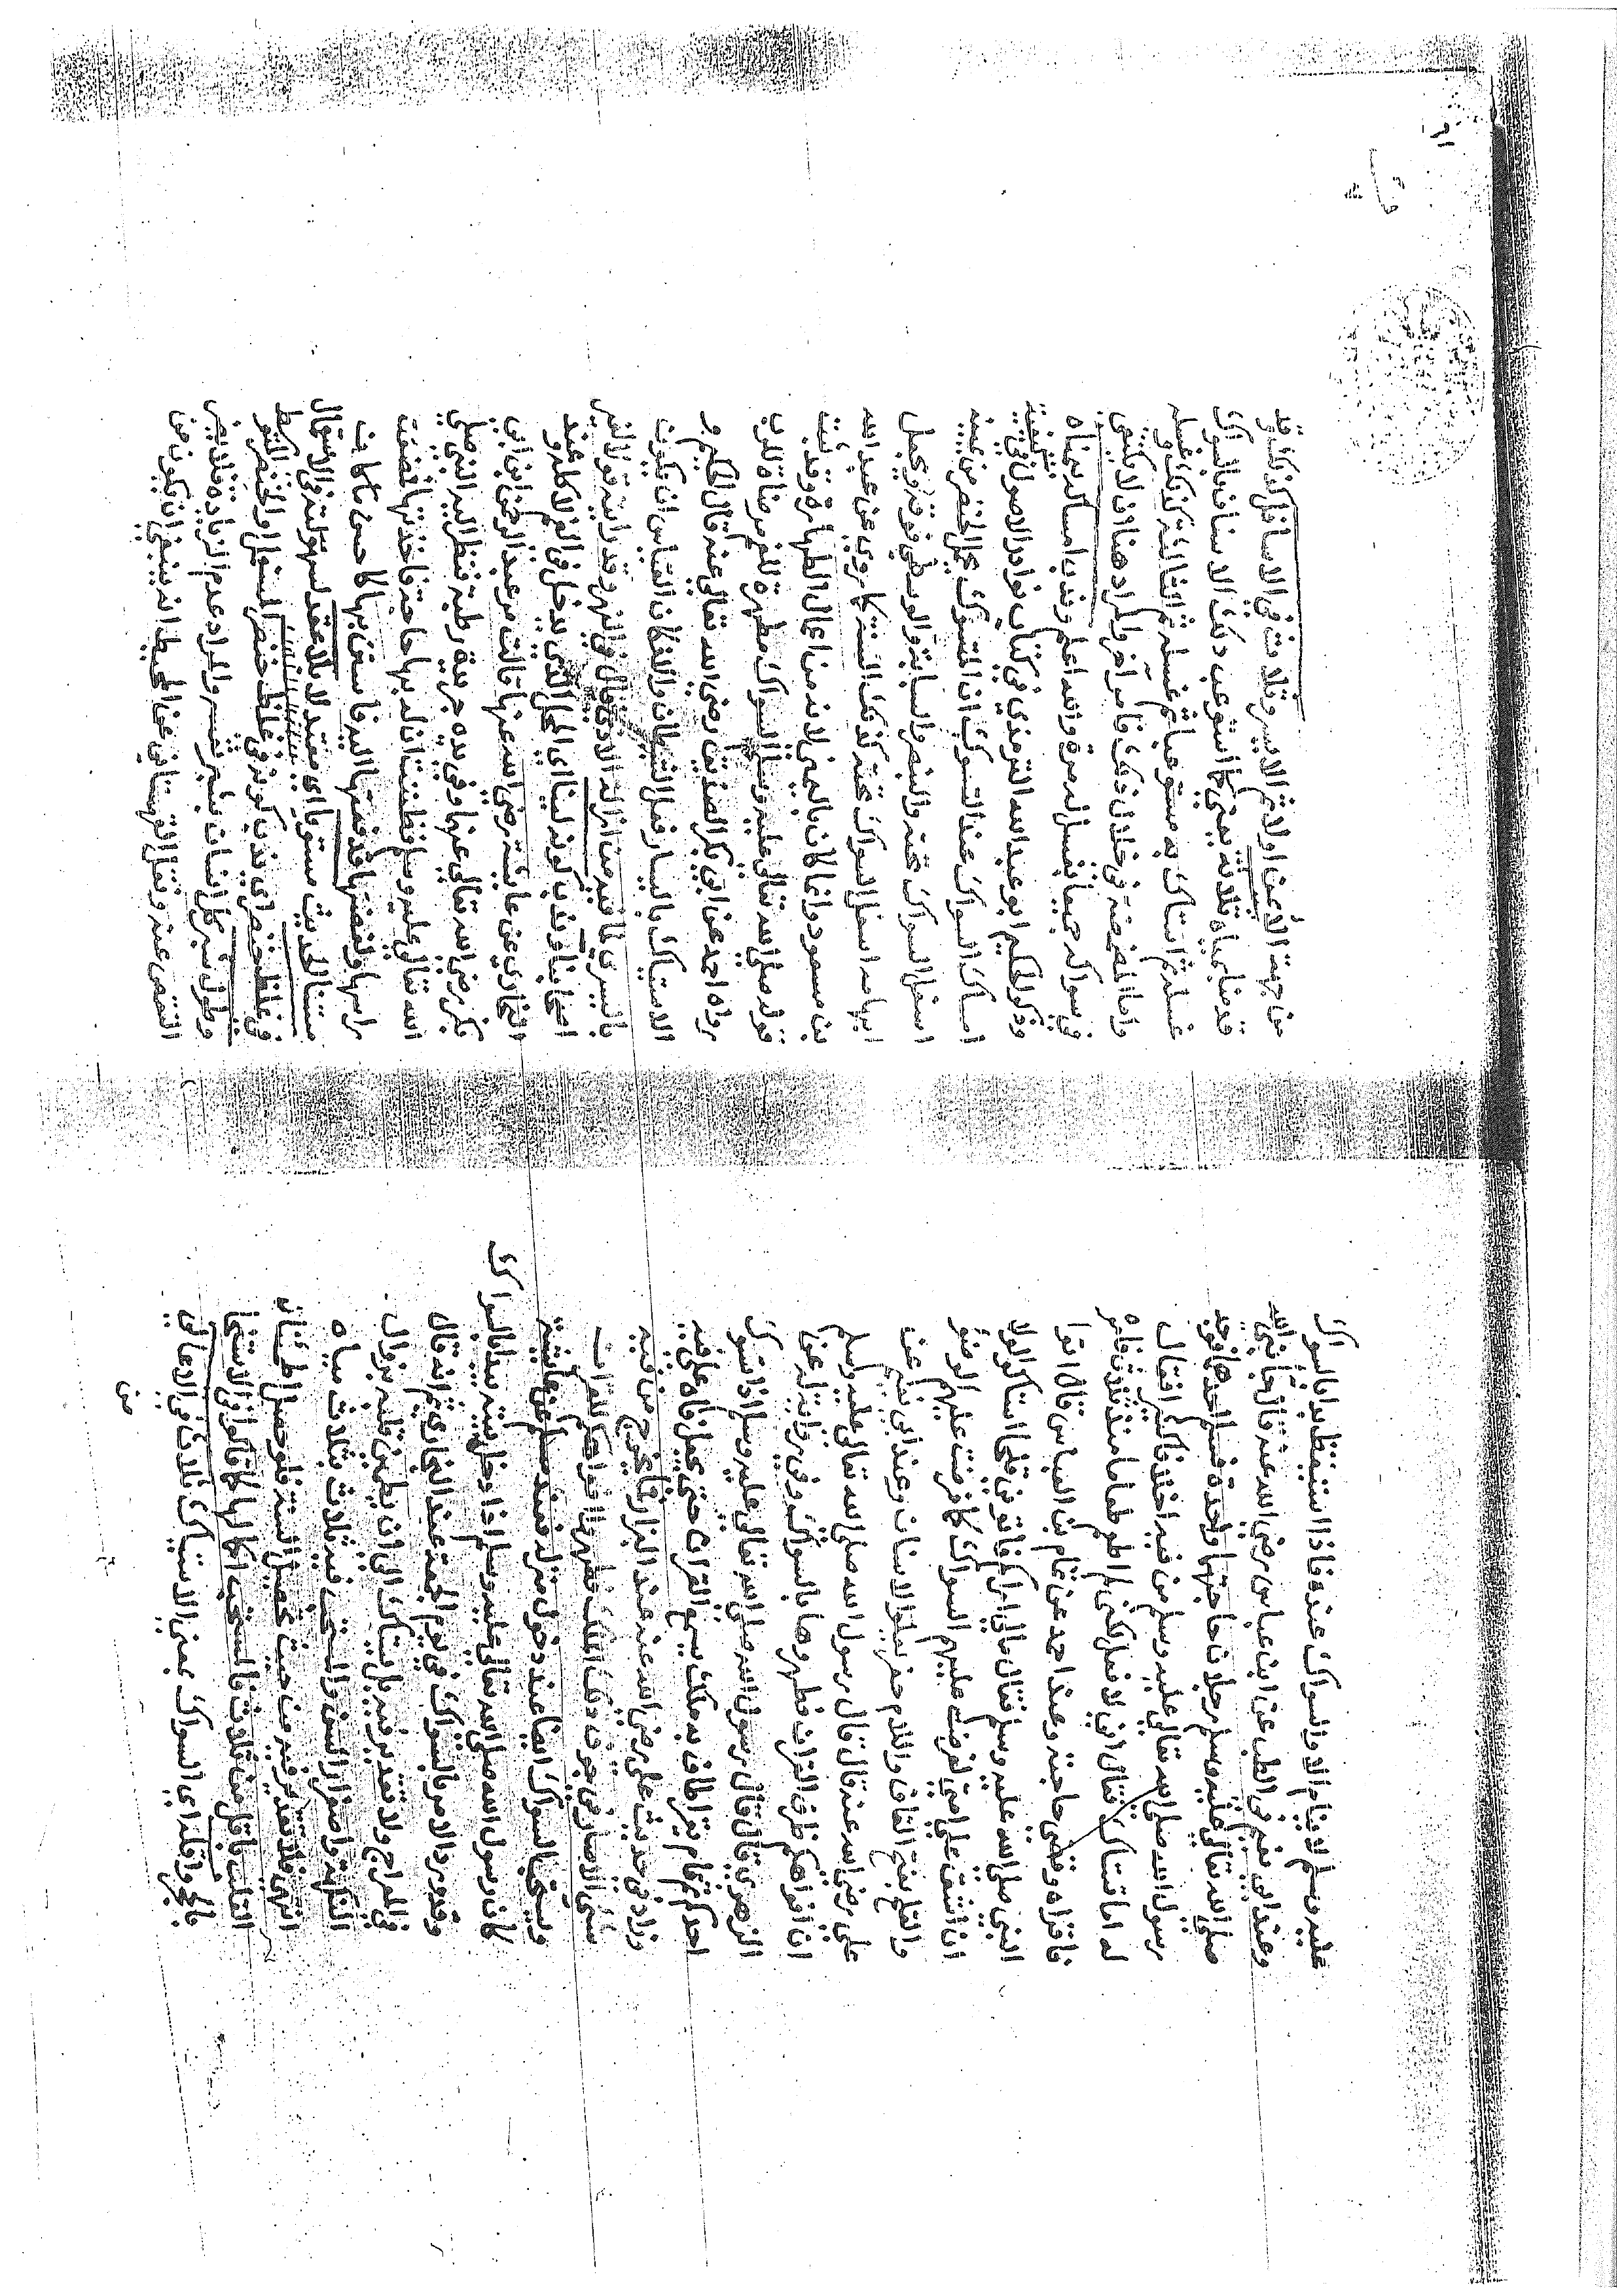 عليه وسلم لا ينام الا والسواك عنده فاذا استيقظ بدا بالسواك
وعند ابي نعيم في الطب عن ابن عباس رضي الله عنه قال جا نبي الله
صلى الله تعالى عليه وسلم رجلان حاجتهما واحدة فتكلم احدهما فوجد
رسول الله صلى الله تعالى عليه وسلم من فيه اخلافا كثيرا فقال
له اما تستاك فقال اني لافعل لكني لم اطعم طعاما منذ ثلاث فامر به
فاقراه وقضى حاجته وعند احمد عن تمام بن العباس قال اتوا
النبي صلى الله عليه وسلم فقال مالي اراكم تاتوني قلحا استاكوا لولا
ان اشق على امتي لفرضت عليهم السواك كما فرضت عليهم الوضوء
والقلح بفتح القاف واللام صفر تعلو الاسنان وعند ابي نعيم عن
علي رضي الله عنه قال قال رسول الله صلى الله تعالى عليه وسلم
ان افواهكم طرق القران فطهروها بالسواك وفي رواية له عن
الزهري قال قال رسول الله صلى الله تعالى عليه وسلم اذا تسوك
احدكم ثم قام يقرا طاف به ملك يسمع القران حتى يجعل فاه على فيه
وزاد في حديث علي رضي الله عنه عند البزار فما يخرج من فيه
شئ الا صار في جوف ذلك الملك فطهروا افواهكم للقران
ويستحب السواك ايضا عند دخول منزله فعند مسلم عن عائشة
كان رسول الله صلى الله تعالى عليه وسلم اذا دخل بيته يبدا بالسواك
وقدورد الامر بالسواك في يوم الجمعة عند البخاري ثم انه قال
في المعراج ولا تقدير فيه بل يستاك الى ان يطمئن قلبه بزوال
النكهة واصفرار السن والمستحب فيه ثلاث بثلاث مياه
انتهى فلا تقدير فيه من حيث تحصيل السنة فلو حصل اطمئنان
القلب باقل من ثلاث فالمستحب اكمالها كما قالوا في الاستنجا
بالحجر واقله اي السواك بمعنى الاستياك ثلاث في الاعالي
من
من جهة الأيمن اولا ثم الايسر وثلاث في الاسافل كذلك وقد
قدمنا بمياه ثلاثه يعني كلما استوعب ذلك الاسنان بالسواك
غسله ثم استاك به مستوعبا ثم غسله ثم الثالثة كذلك وغسله
واما المضمضة في خلال ذلك فامر اخر ولم ارد هنا فان لا يكتفي
في سواكه جميعا بغسل له مرة والله اعلم وندب امساكه بيمناه
وذكر الحكيم ابو عبد الله الترمذي في كتاب نوادر الاصول في كيفية
امساك السواك عند التسوك ان المتسوك يجعل الخنصر من يمينه
اسفل السواك تحته والبنصر والسبابة والوسطى فوقه ويجعل
ابهامه اسفل السواك تحته كذلك السنة كما روي عن عبد الله
بن مسعود وانما كان باليمنى لانه من اعمال الطهارة وقد ثبت
قوله صلى الله تعالى عليه وسلم السواك مطهرة للفم مرضاة للرب
رواه احمد عن ابي بكر الصديق رضي الله تعالى عنه قال الحكيم و
الاستياك باليسار فعل الشيطان وان كان القياس ان يكون
باليسرى لما فيه من ازالة الاذى قال في النهر وقد رايته قولا لبعض
اصحابنا وندب كونه لينا اي المحل الذي يدخل في الفم لا كله وعند
البخاري عن عايشة رضي الله عنها قالت مر عبد الرحمن ابن ابي
بكر رضي الله تعالى عنهما وفي يده جريدة رطبة فنظر اليه النبي صلى
الله تعالى عليه وسلم فظننت ان له بها حاجة فاخذتها فمضغت
راسها ونفضتها فدفعتها اليه فاستن بها كاحسن ما كان
مستنا الحديث مستويا اي معتدلا بلا عقد لسهولته في الاستعمال
في غلظ خنصر اي ندب كونه في غلظ خنصر
وطول شبر كل انسان بشبر نفسه والمراد عدم الزيادة فلا يضر
النقص عنه ونقل القهستاني عن المحيط انه ينبغي ان يكون من